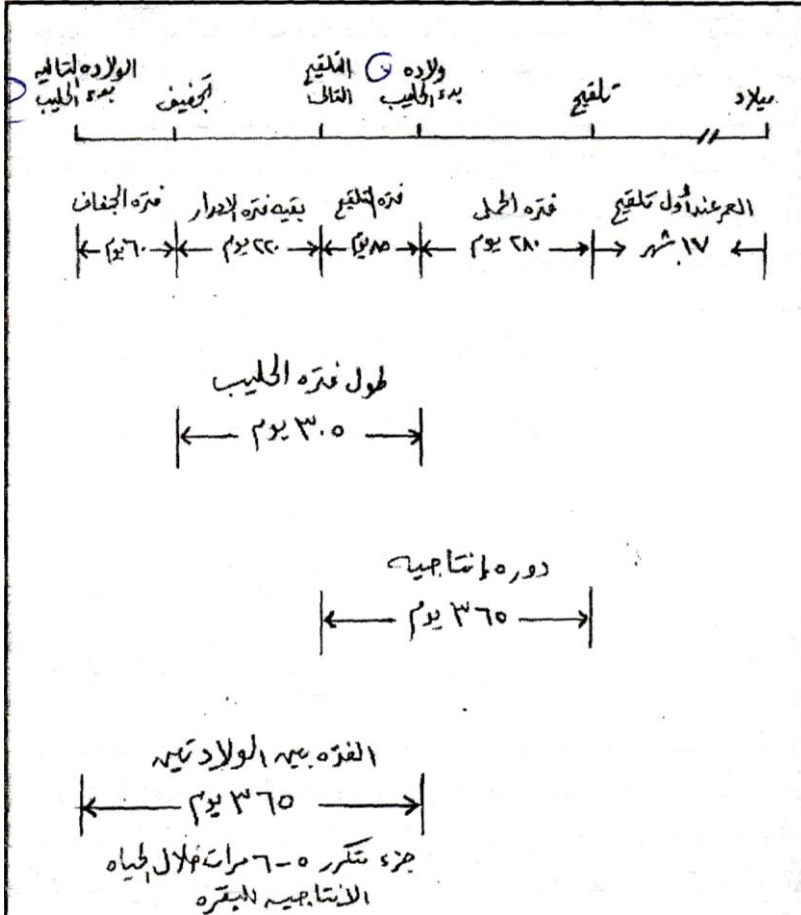 ميلاد
تلقيح
ولاده
بدء الحليب
التلقيح
التالى
تجفيف
الولاده التاليه
بدء الحليب
العمر عند أول تلقيح
١٧ شهر
فتره الحمل
٢٨٠ يوم
فتره التلقيح
٨٥ يوم
بقيه فتره الادرار
٢٢٠ يوم
فتره الجفاف
٦٠ يوم
طول فتره الحليب
٣٠٥ يوم
دوره إنتاجيه
٣٦٥ يوم
الفتره بين الولادتين
٣٦٥ يوم
جزء متكرر ٥-٦ مرات خلال الحياه
الانتاجيه للبقره